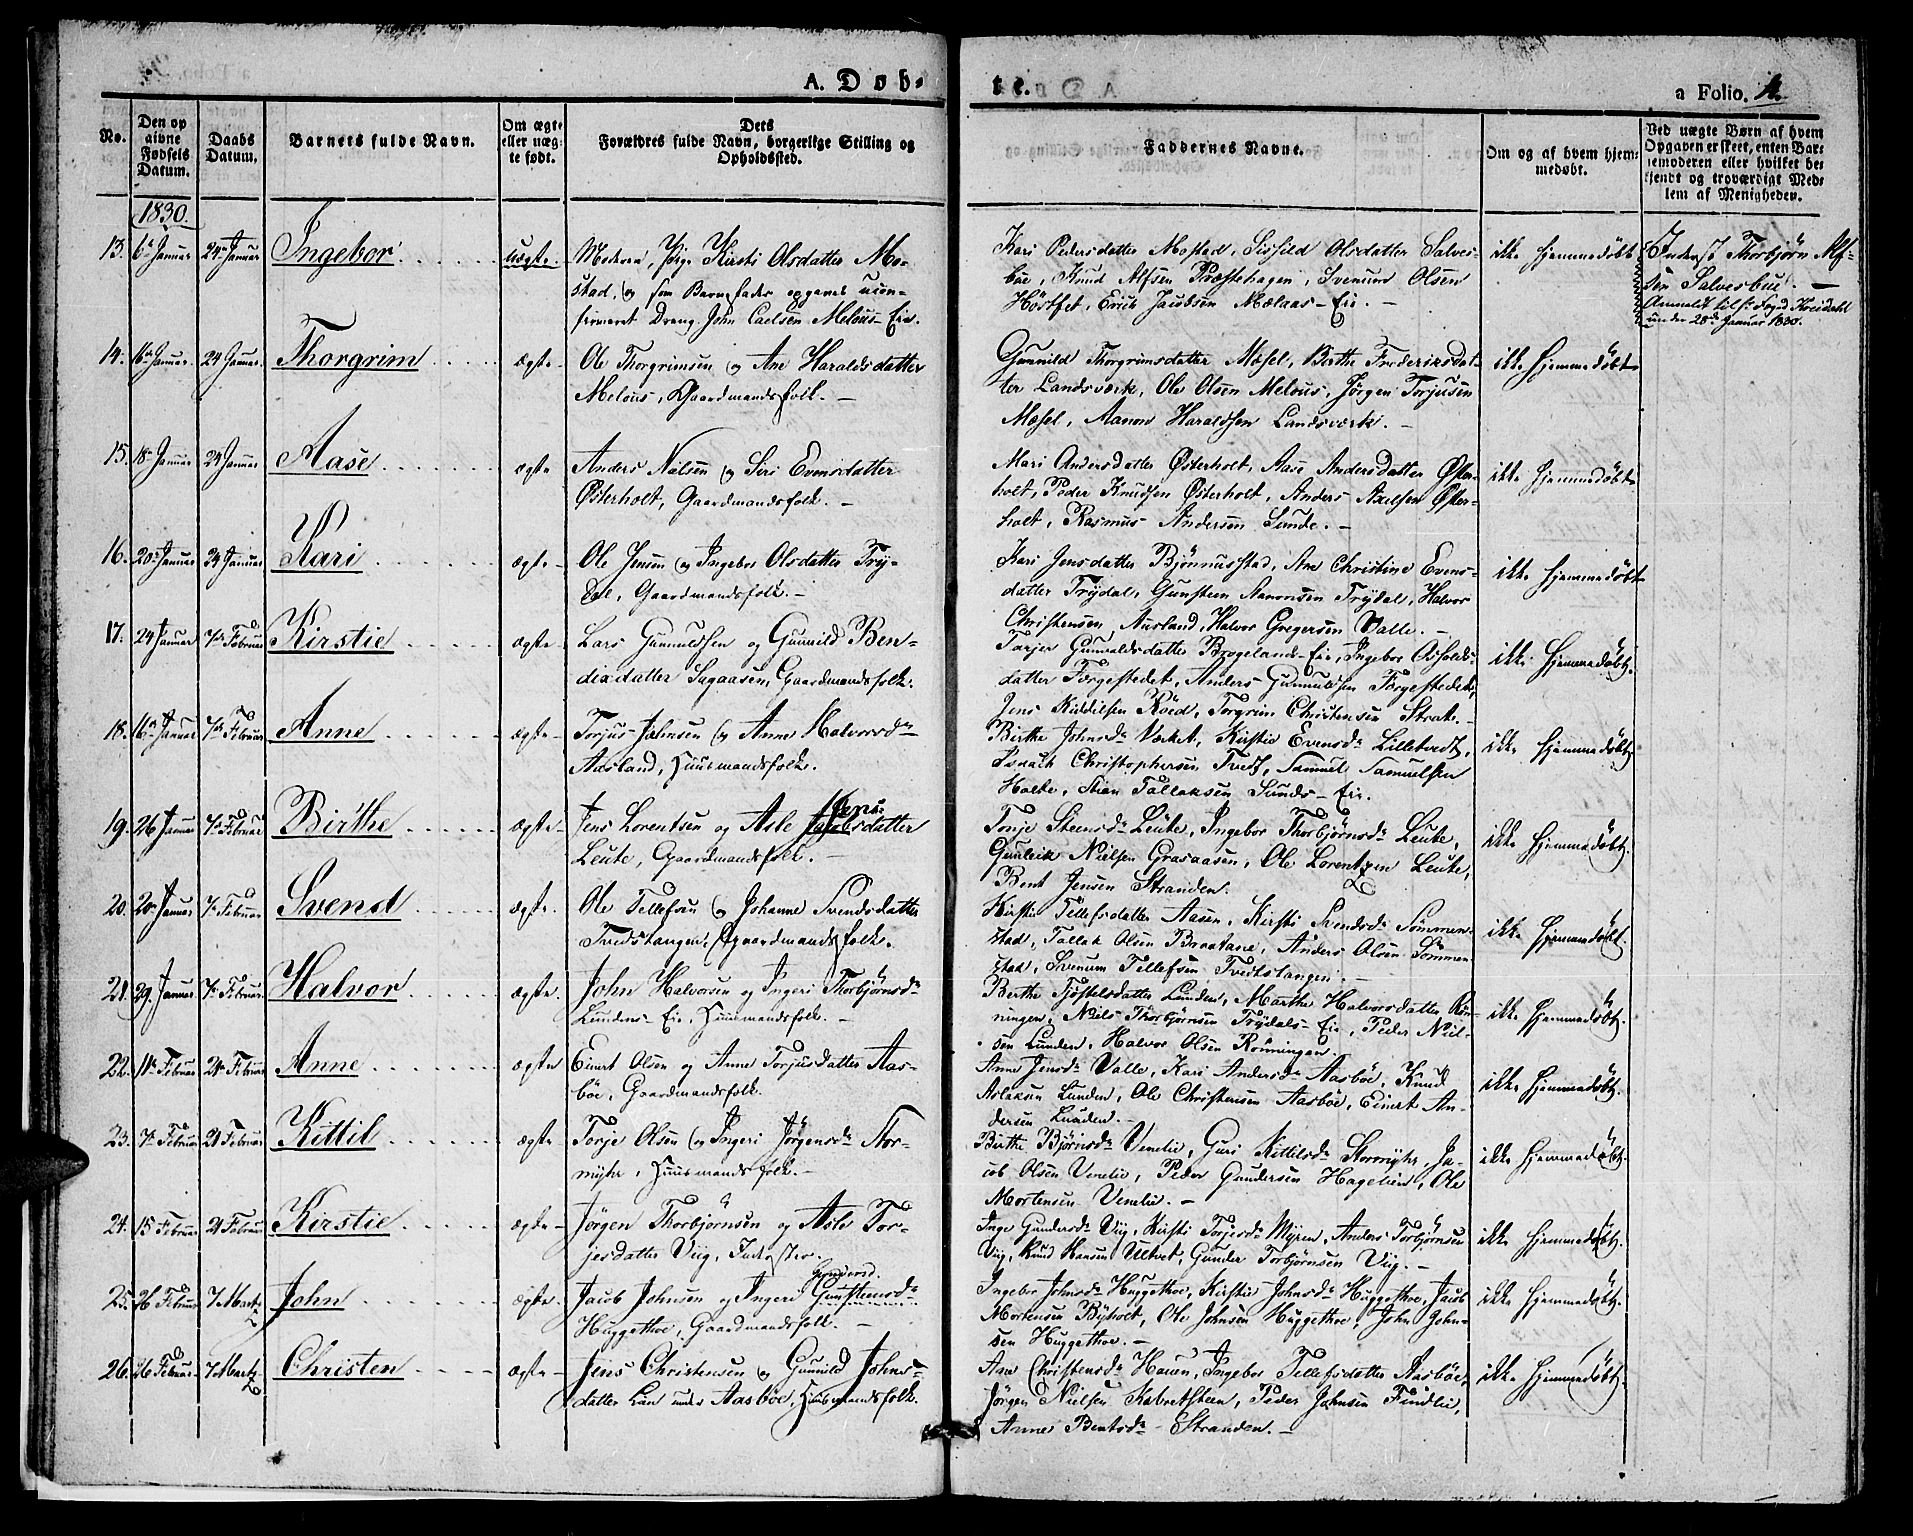 A. Døb-
te.
a Folio. 4.
No.
Den op
givne
Fødsels
Datum.
Daabs
Datum.
Barnets fulde Navn.
Om ægte
eller uæg-
te født.
Dets
Forældres fulde Navn, borgerlige Stilling og
Opholdssted.
Faddernes Navne.
Om og af hvem hjem-
medøbt.
Ved uægte Børn af hvem
Opgaven er skeet, enten Bar-
nemoderen eller hvilket be-
kjendt og troværdigt Med-
lem af Menigheden.
1830.
13. 6te Januar 24de Januar Ingebor. uægte. Moderen, Pige Kirsti Olsdatter Mo-
stad, og som Barnefader opgavet ucon-
firmeret Dreng John Carlsen Melous-Eie.
Kari Pedersdatter Mostad, Sisild Olsdatter Salves-
bøe, Knud Alfsen Præstehagen, Svenum Olsen
Erick Jacobsen Mælaas-Eie. -
ikke hjemmedøbt
Inderst Thorbjørn Alf-
sen Salvesbue. -
Anmeldt til
under 28de Januar 1830.
14. 16de Januar 24 Januar Thorgrim ægte Ole Thorgrimsen og Ane Haraldsdatter
Melous, Gaardmandsfolk. -
Gunnild Thorgrimsdatter Mæsel, Berthe Frederiksdat-
ter Landsværk, Ole Olsen Melous, Jørgen Torjusen
Mæsel, Aanon Haraldsen Landsværk. -
ikke hjemmedøbt
15. 18de Januar 24 Januar Aase ægte Anders Nielsen og Siri Evensdatter
Østerholt, Gaardmandsfolk. -
Mari Andersdatter Østerholt, Aase Andersdatter Øster-
holt, Peder Knudsen Østerholt, Anders Axelsen Øster-
holt, Rasmus Andersen Sunde. -
ikke hjemmedøbt
16. 20de Januar 24 Januar Kari ægte - Ole Jensen og Ingebor Olsdatter Try-
dal, Gaardmandsfolk. -
Kari Jensdatter Bjønnusstad, Ane Christine Evens-
datter Trydal, Gunsteen Aanonsen Trydal, Halvor
Christensen Ausland, Halvor Gregersen Valle. -
ikke hjemmedøbt
17. 24 Januar 7de Februar Kirstie ægte - Lars Gunnuldsen og Gunnild Ben-
dixdatter Sagaasen, Gaardmandsfolk.
Tarjer Gunvaldsdatter Brogelands-Eie, Ingebor
datter Førgestedet, Anders Gunnuldsen Førgestedet,
Jens Kiddilsen Röed, Torgrim Christensen
ikke hjemmedøbt.
18. Januar 7de Februar Anne ægte - Torjus Johnsen og Anne Halvorsdr
Aasland, Huusmandsfolk.
Birthe Johnsdr Værket, Kirstie Evensdr Lilletvedt,
Isaach Christophersen Tvedt, Samuel Samuelsen
Holte, Tallaksen Sunds-Eie.
ikke hjemmedøbt.
19. 26 Januar 7de Februar Birthe ægte Jens Lorentsen og Asle Jens-
datter
Leute, Gaardmandsfolk. -
Tonje Steensdr Leute, Ingebor Thorbjørnsdr Leute,
Gunleik Nielsen Grasaasen, Ole Lorentzen Leute,
Bent Jensen Stranden.
ikke hjemmedøbt.
20. 20de Januar 7de Februar Svend ægte. Ole Tellefsen og Johanne Svendsdatter
Tvedstangen, Gaardmandsfolk.
Kirstie Tellefsdatter Aasen, Kirsti Svendsdr Sømmen-
stad, Tallak Olsen Braatane, Anders Olsen Sømmen-
stad, Svenum Tellefsen Tvedtstangen. -
ikke hjemmedøbt.
21. 29. Januar 7de Februar Halvor ægte. John Halvorsen og Ingeri Thorbjørnsdr
Lundens-Eie, Huusmandsfolk. -
Berthe Lunden, Marthe Halvorsdatter Røn-
ningen, Niels Thorbjørnsen Trydals-Eie, Peder Niel-
sen Lunden, Halvor Olsen Rønningen.
ikke hjemmedøbt.
22. 11te Februar 21de Februar Anne ægte Einert Olsen og Anne Torjusdatter Aas-
bøe, Gaardmandsfolk.
Anne Jensdr Valle, Kari Andersdr Aasbøe, Knud
Aslaksen Lunden, Ole Christensen Aasbøe, Einert An-
dersen Lunden. -
ikke hjemmedøbt.
23. 7de Februar 21 Februar Kittil ægte Torje Olsen og Ingeri Jørgensdr Stor-
myhr, Huusmandsfolk. -
Birthe Bjørnsdr Venelie, Guri Kittilsdr Stormyhr, Ja-
cob Olsen Venelie, Peder Gundersen Hagelien, Ole
Mortensen Venelie. -
ikke hjemmedøbt.
24. 15 Februar 21 Februar Kirstie ægte - Jørgen Thorbjørnsen og Asle Tor-
jesdatter Viig, Inderster.
Inge Gundersdr Viig, Kirsti Torjesdr Myren, Anders Torbjørnsen
Viig, Knud Hansen Ulltvet, Gunder Torbjørnsen Viig. -
ikke hjemmedøbt.
25. 26 Februar 7 Martz John ægte. Jacob Johnsen og Ingeri Gundersd.
Gunsteensdr
Huggethoe, Gaardmandsfolk. -
Ingebor Johnsdr Huggethoe, Kirstie Johnsdr Huggethoe, Jacob
Mortensen Byholt, Ole Johnsen Huggethoe, John John-
sen Huggethoe. -
ikke hjemmedøbt.
26. 26 Februar 7 Martz Christen ægte - Jens Christensen og Gunnild Johns-
datter Lien under Aasbøe, Huusmandsfolk.
Ane Christensdr Hauen, Ingebor Tellefsdatter Aasbøe,
Jørgen Nielsen Kabretsteen, Peder Johnsen Findlie,
Anne Bentsdr Stranden. -
ikke hjemmedøbt.